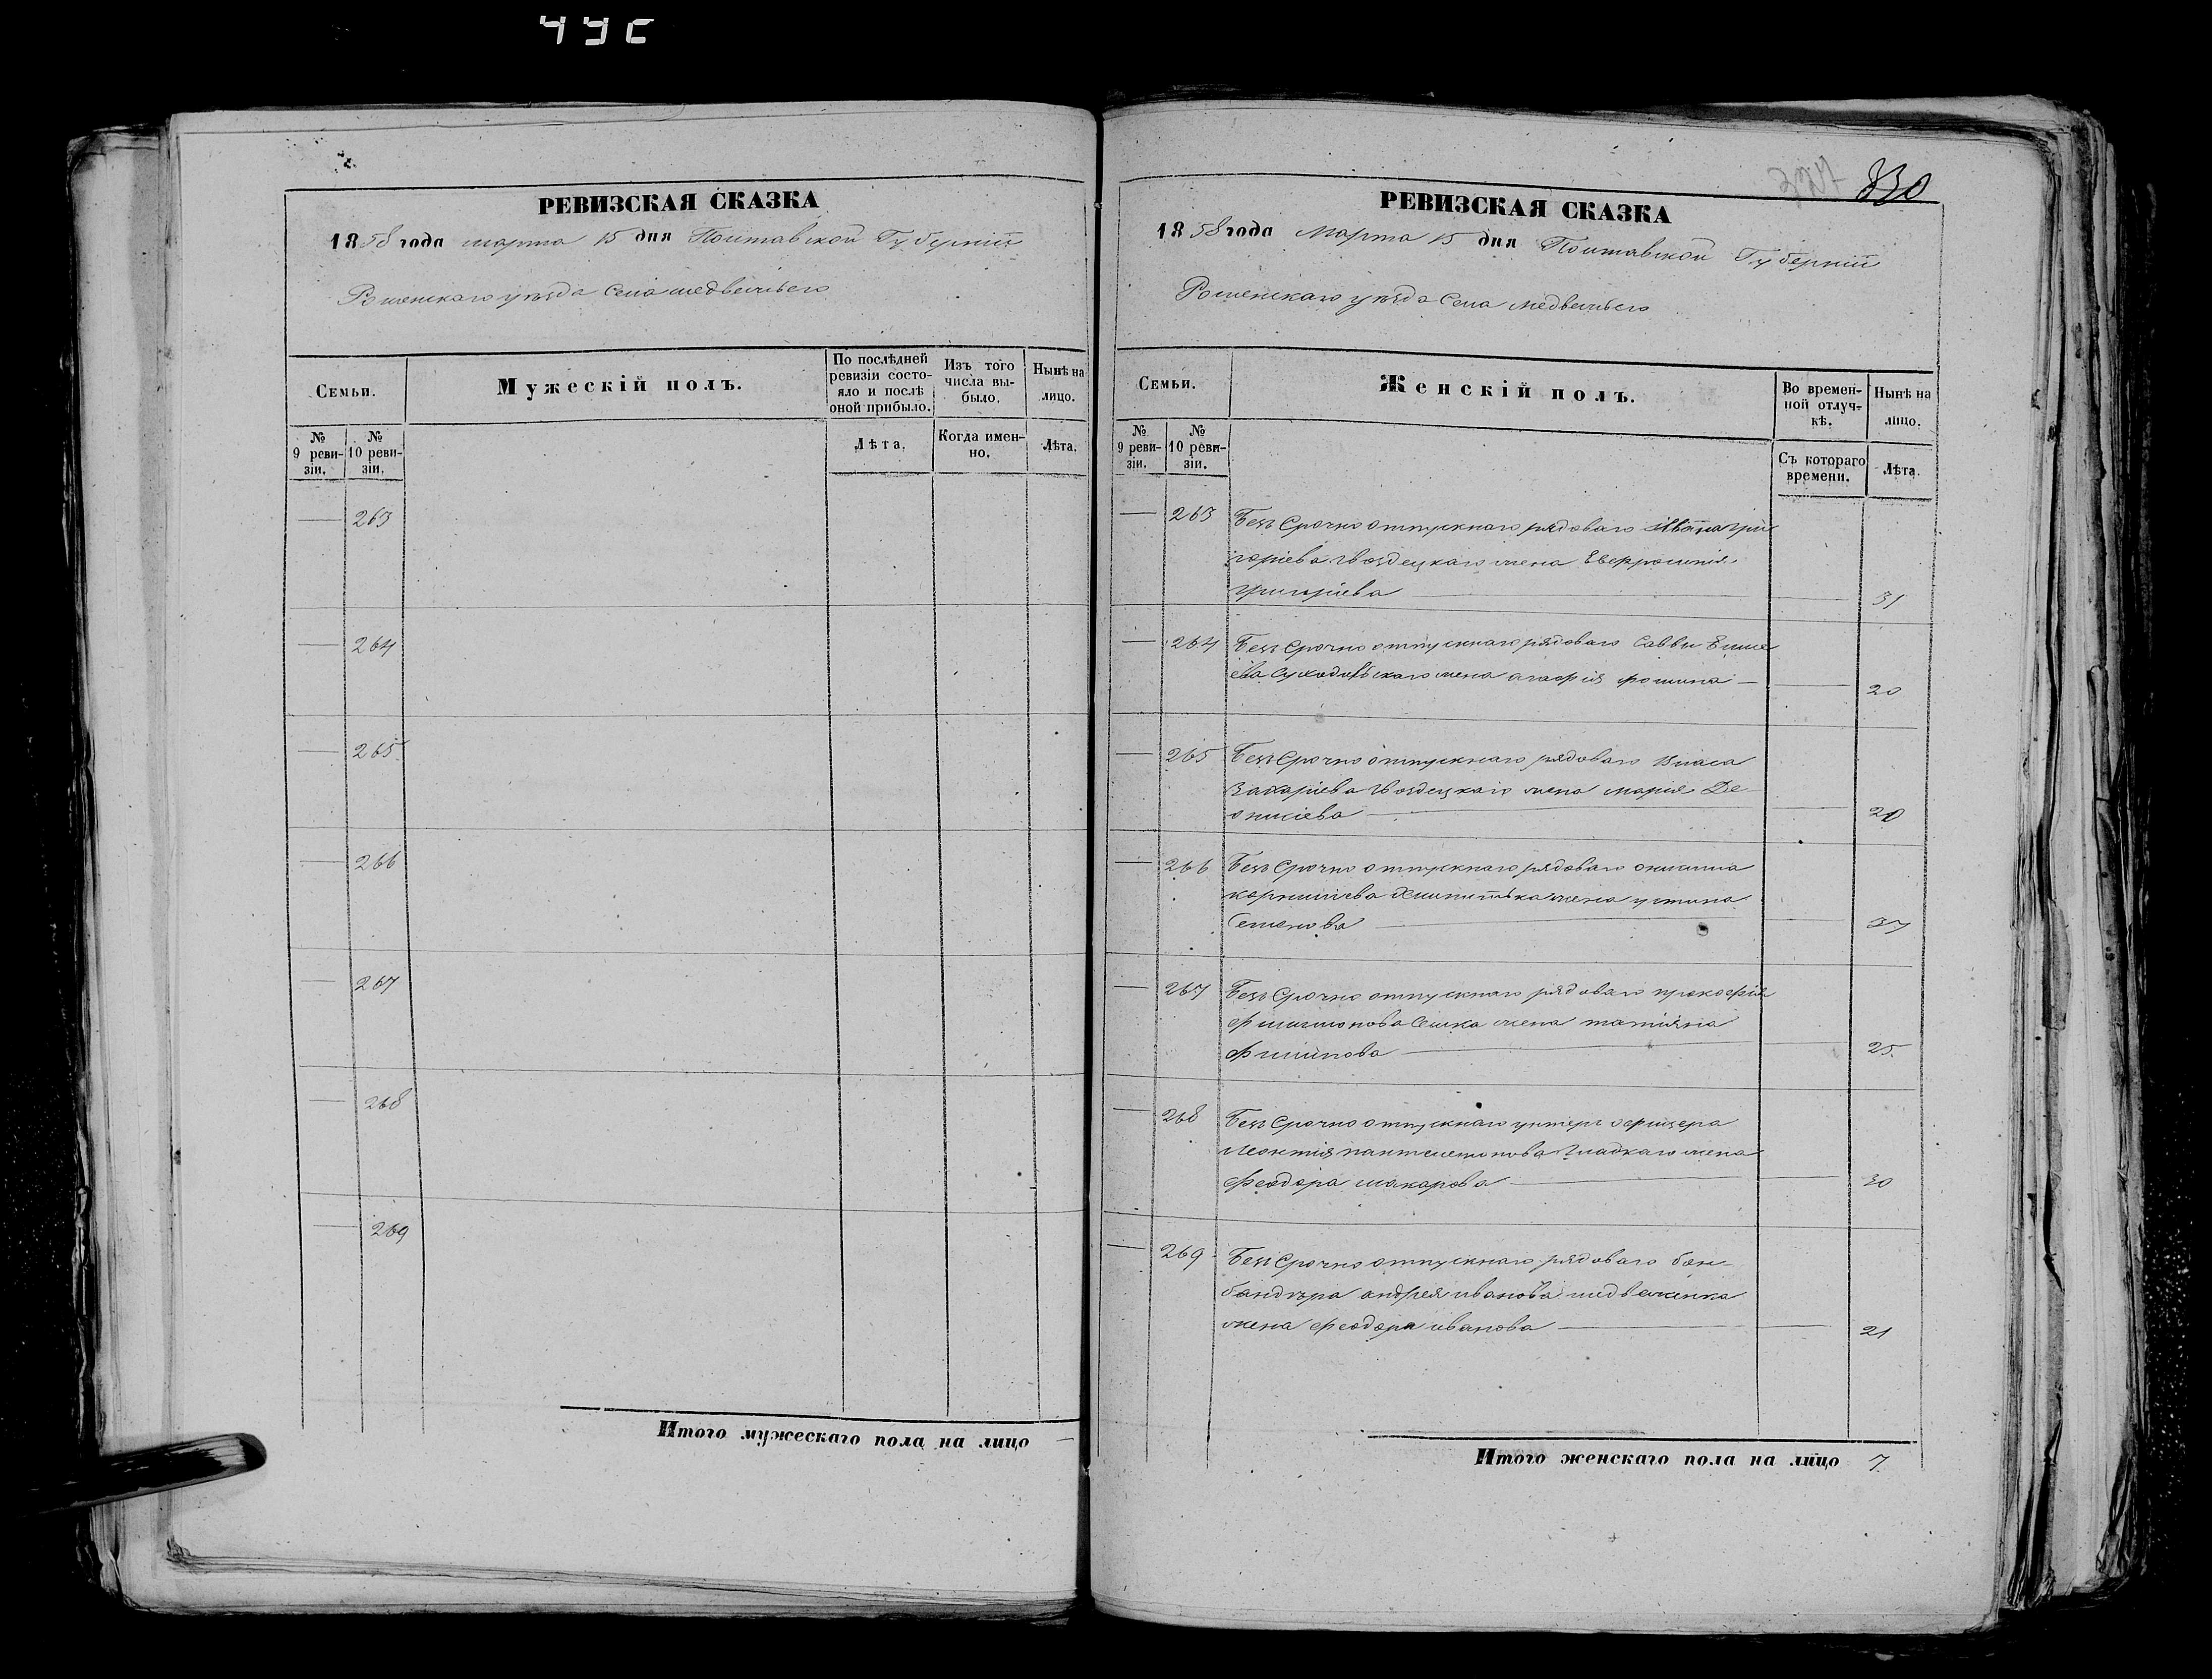 ЧУС
РЕВИЗСКАЯ СКАЗКА
1858 года марта 15 дня Полтавской Губернiи
Роменскаго уезда Села медвежьего
Семьи.
Мужескiй полъ.
По послѣдней ревизiи состо-
яло и послѣ оной прибыло.
Изъ того числа вы-
было.
Нынѣ на лицо.
№ 9 реви-
зiи.
№ 10 реви-
зiи.
Лѣта.
Когда имен-
но.
Лѣта.
— 263
— 264
— 265
— 266
— 267
— 268
— 269
Итого мужескаго пола на лицо —
330
РЕВИЗСКАЯ СКАЗКА
1858 года Марта 15 дня Полтавской Губернiи
Роменскаго уезда Села медвежьего
Семьи.
Женскiй полъ.
Во времен-
ной отлуч-
кѣ.
Нынѣ на лицо.
№ 9 реви-
зiи.
№ 10 реви-
зiи.
Съ котораго времени.
Лѣта.
— 263 Безъ Срочно отпускнаго рядоваго Ивана Гри
горiева Гвоздецкаго жена Евфросинiя
Григорiева — 31
— 264 Безъ Срочно отпускнаго рядоваго Саввы
жена агафiя фомина — 20
— 265 Безъ Срочно отпускнаго рядоваго Власа
Захарiева Гвоздецкаго жена марiя Де
онисiева — 20
— 266 Безъ Срочно отпускнаго рядоваго
корнилiева жена устина
Семенова — 37
— 267 Безъ Срочно отпускнаго рядоваго прокофiя
филимонова жена татiяна
филипова — 25
— 268 Безъ Срочно отпускнаго унтеръ офицера
Леонтiя пантелемонова Гладкаго жена
феодора макарова — 30
— 269 Безъ Срочно отпускнаго рядоваго бон-
бандира андрея иванова
жена феодора иванова — 21
Итого женскаго пола на лицо 7